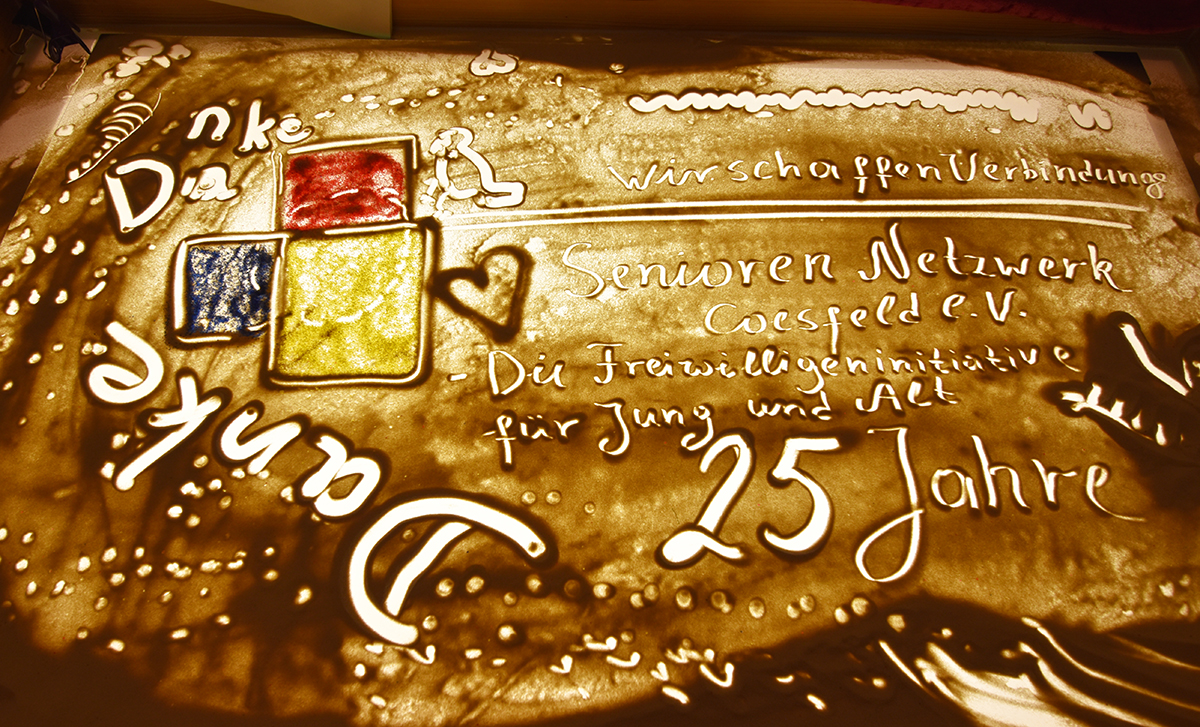 Danke
wir schaffen Verbindung
Senioren Netzwerk
Coesfeld e.V.
Die Freiwilligeninitiative
für Jung und Alt
25 Jahre
Danke